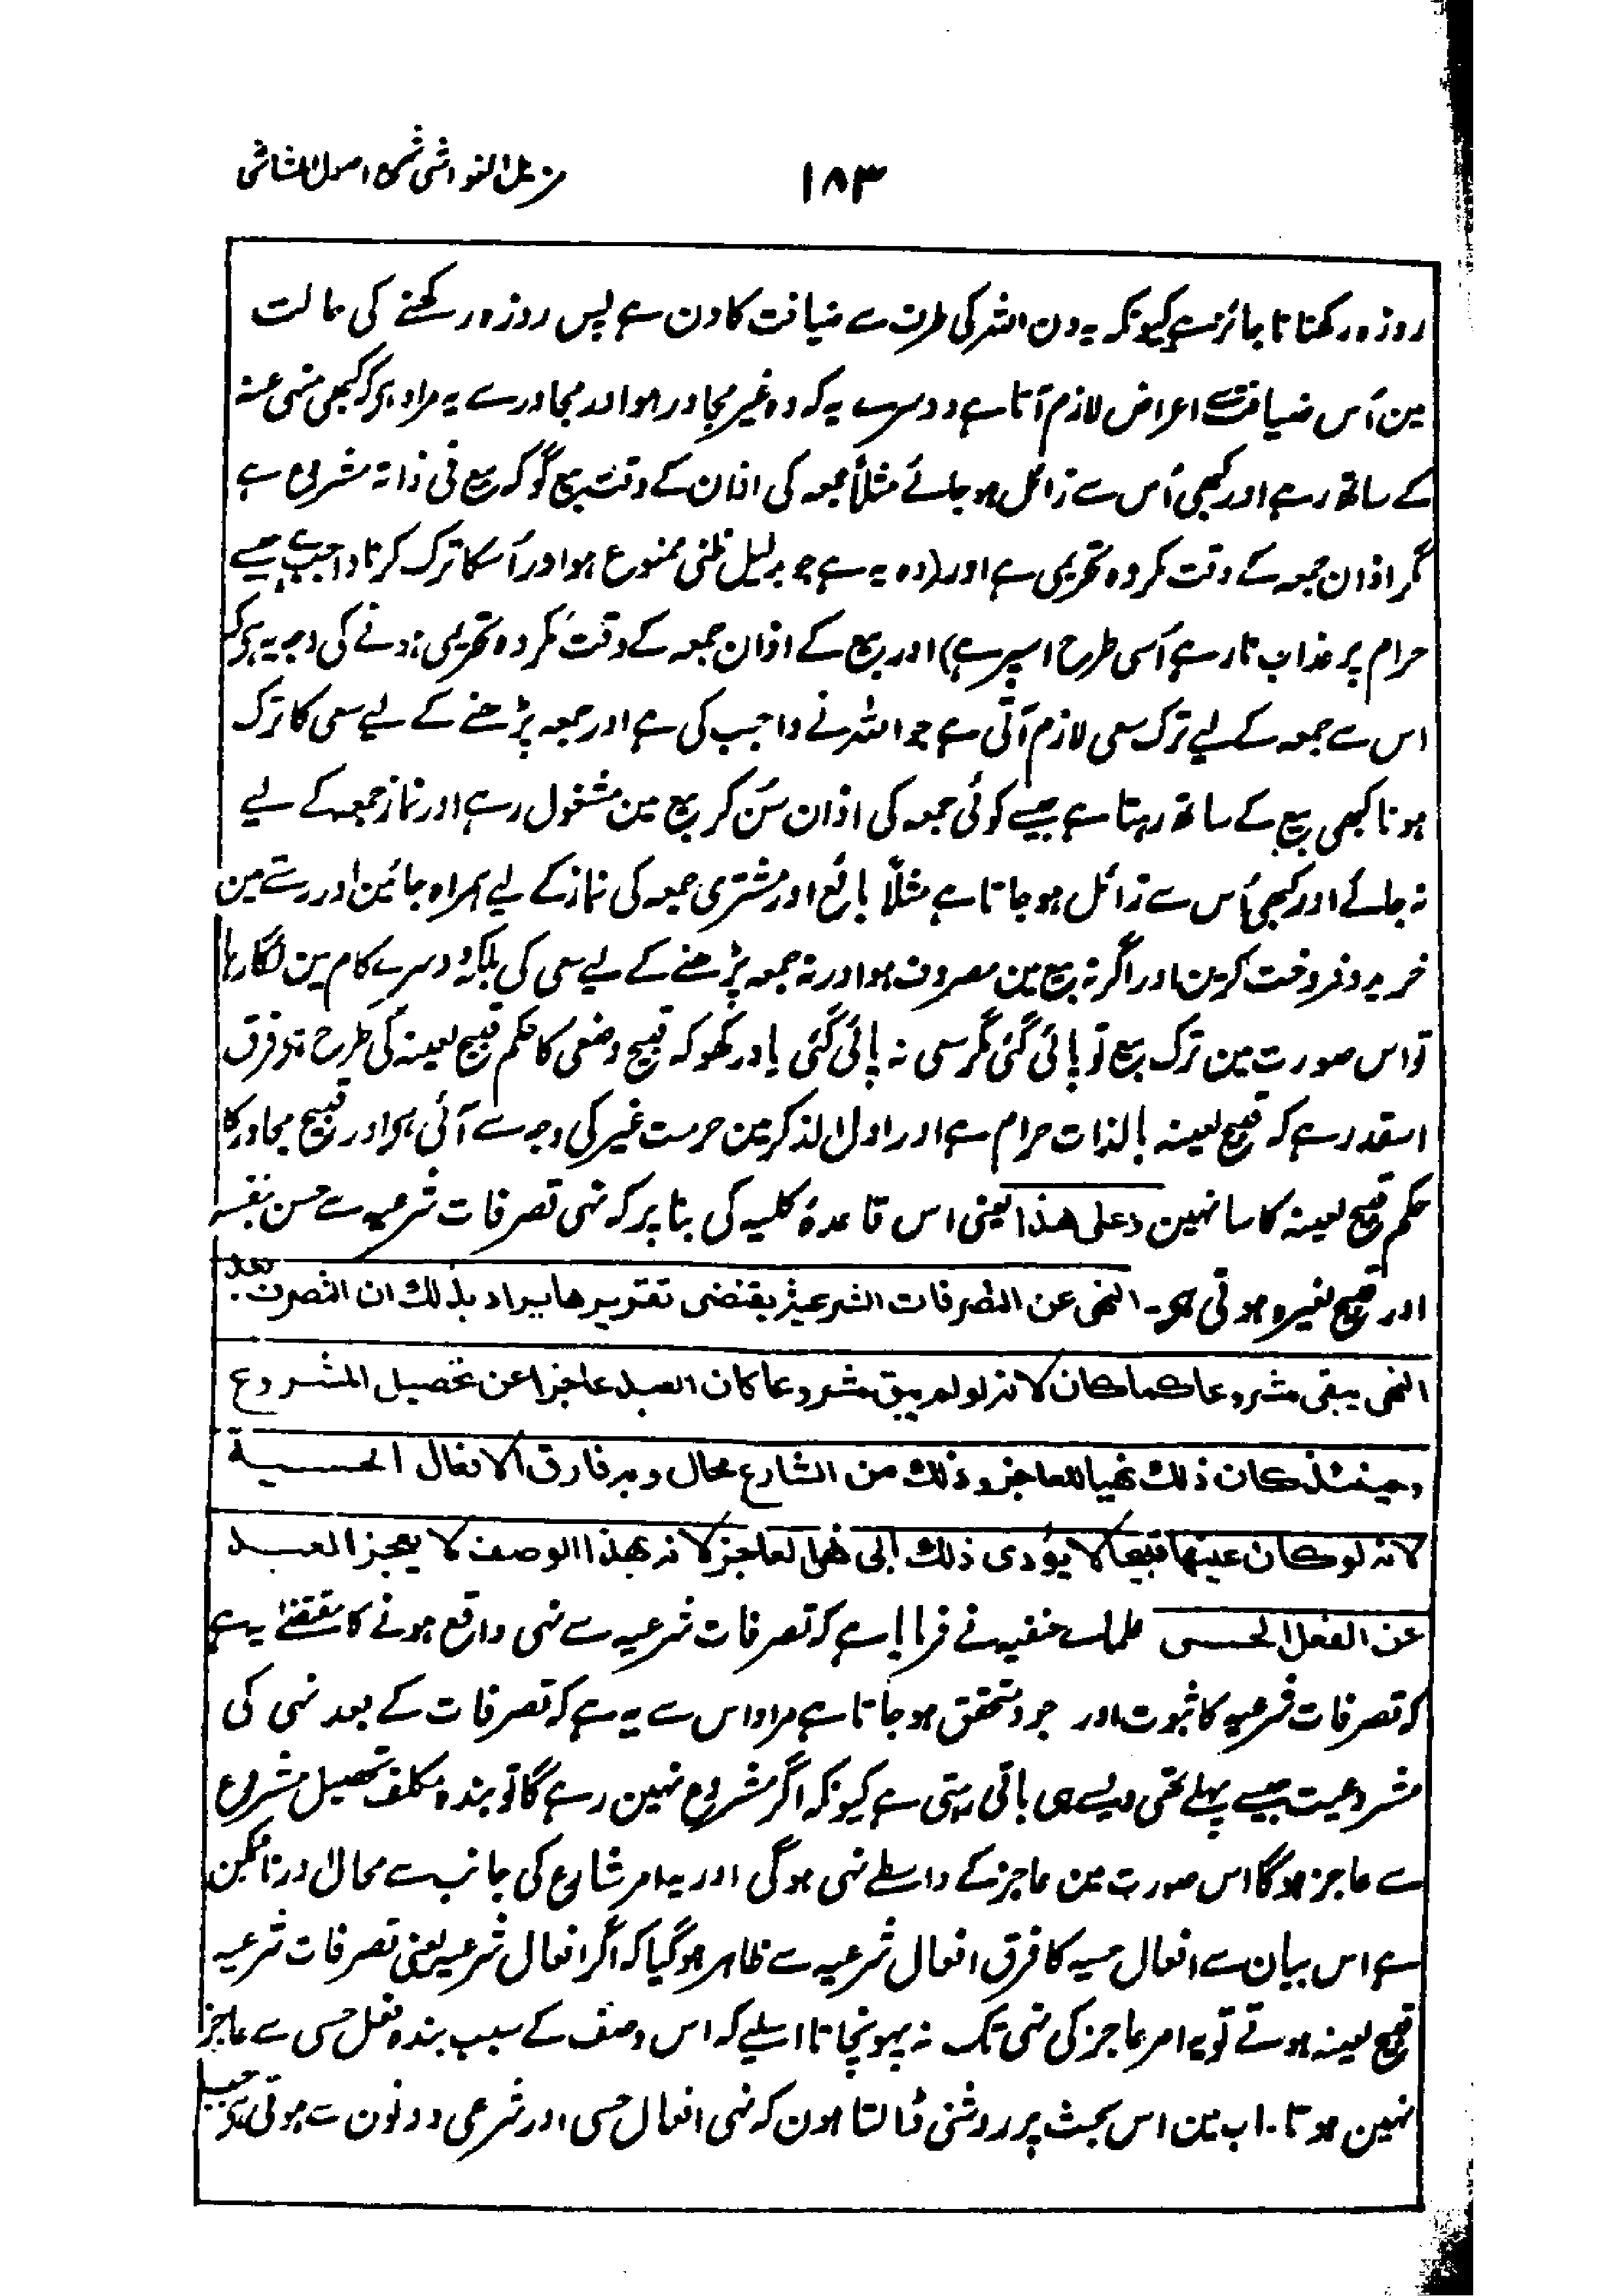 ۱۸۳
مزیل الغواشی شرح اصول الشاشی
روزہ رکھنا ناجائز ہے کیونکہ یہ دن اللہ کی طرف سے ضیافت کا دن ہے پس روزہ رکھنے کی حالت
مین اُس ضیافت سے اعراض لازم آتا ہے دوسرے یہ کہ وہ غیر مجاور ہو اور مجاور سے یہ مراد ہی کہ کبھی منہی عنہ
کے ساتھ رہے اور کبھی اُس سے زائل ہو جائے مثلاً جمعہ کی اذان کے وقت بیع گو کہ بیع فی ذاتہ مشروع ہے
مگر اذان جمعہ کے وقت مکروہ تحریمی ہے اور (وہ یہ ہے جو بدلیل ظنی ممنوع ہو اور اُسکا ترک کرنا واجب ہے جیسے
حرام پر عذاب نار ہے اُسی طرح اسپر ہے) اور بیع کے اذان جمعہ کے وقت مکروہ تحریمی ہونے کی وجہ یہ ہی کہ
اس سے جمعہ کے لیے ترک سعی لازم آتی ہے جو اللہ نے واجب کی ہے اور جمعہ پڑھنے کے لیے سعی کا ترک
ہونا کبھی بیع کے ساتھ رہتا ہے جیسے کوئی جمعہ کی اذان سُن کر بیع مین مشغول رہے اور نماز جمعہ کے لیے
نہ جائے اور کبھی اُس سے زائل ہو جاتا ہے مثلاً بائع اور مشتری جمعہ کی نماز کے لیے ہمراہ جائین اور رستے مین
خرید و فروخت کرین اور اگر نہ بیع مین مصروف ہو اور نہ جمعہ پڑھنے کے لیے سعی کی بلکہ دوسرے کام مین لگا رہا
تو اس صورت مین ترک بیع تو پائی گئی مگر سعی نہ پائی گئی یاد رکھو کہ قبیح وضعی کا حکم قبیح لعینہ کی طرح ہو فرق
اسقدر ہے کہ قبیح لعینہ بالذات حرام ہے اور اول الذکر مین حرمت غیر کی وجہ سے آئی ہی اور قبیح مجاور کا
حکم قبیح لعینہ کا سا نہین وعلی ھذا یعنی اس قاعدۂ کلیہ کی بنا پر کہ نہی تصرفات شرعیہ سے حسن بنفسہ
اور قبیح لغیرہ ہوتی ہی۔ النھی عن التصرفات الشرعیۃ یقتضی تقریرھا یراد بذلک ان التصرف بعد
النھی یبقی مشروعا کما کان لانہ لو لم یبق مشروعا کان العبد عاجزا عن تحصیل المشروع
وحینئذ کان ذلک نھیا للعاجز وذلک من الشارع محال وبہ فارق الافعال الحسیۃ
لانہ لو کان عینھا قبیحا لا یؤدی ذلک الی نھی العاجز لانہ بھذا الوصف لا یعجز العبد
عن الفعل الحسی علماے حنفیہ نے فرمایا ہے کہ تصرفات شرعیہ سے نہی واقع ہونے کا مقتضےٰ یہ ہے
کہ تصرفات شرعیہ کا ثبوت اور جود متحقق ہو جاتا ہے مراد اس سے یہ ہے کہ تصرفات کے بعد نہی کی
مشروعیت جیسے پہلے تھی ویسے ہی باقی رہتی ہے کیونکہ اگر مشروع نہین رہے گا تو بندہ مکلف تحصیل مشروع
سے عاجز ہوگا اس صورت مین عاجز کے واسطے نہی ہوگی اور یہ امر شارع کی جانب سے محال اور ناممکن
ہے اس بیان سے افعال حسیہ کا فرق افعال شرعیہ سے ظاہر ہو گیا کہ اگر افعال شرعیہ یعنی تصرفات شرعیہ
قبیح لعینہ ہوتے تو یہ امر عاجز کی نہی تک نہ پہونچاتا اسلیے کہ اس وصف کے سبب بندہ فعل حسی سے عاجز
نہین ہوتا۔ اب مین اس بحث پر روشنی ڈالتا ہون کہ نہی افعال حسی اور شرعی دونون سے ہوتی ہی جب